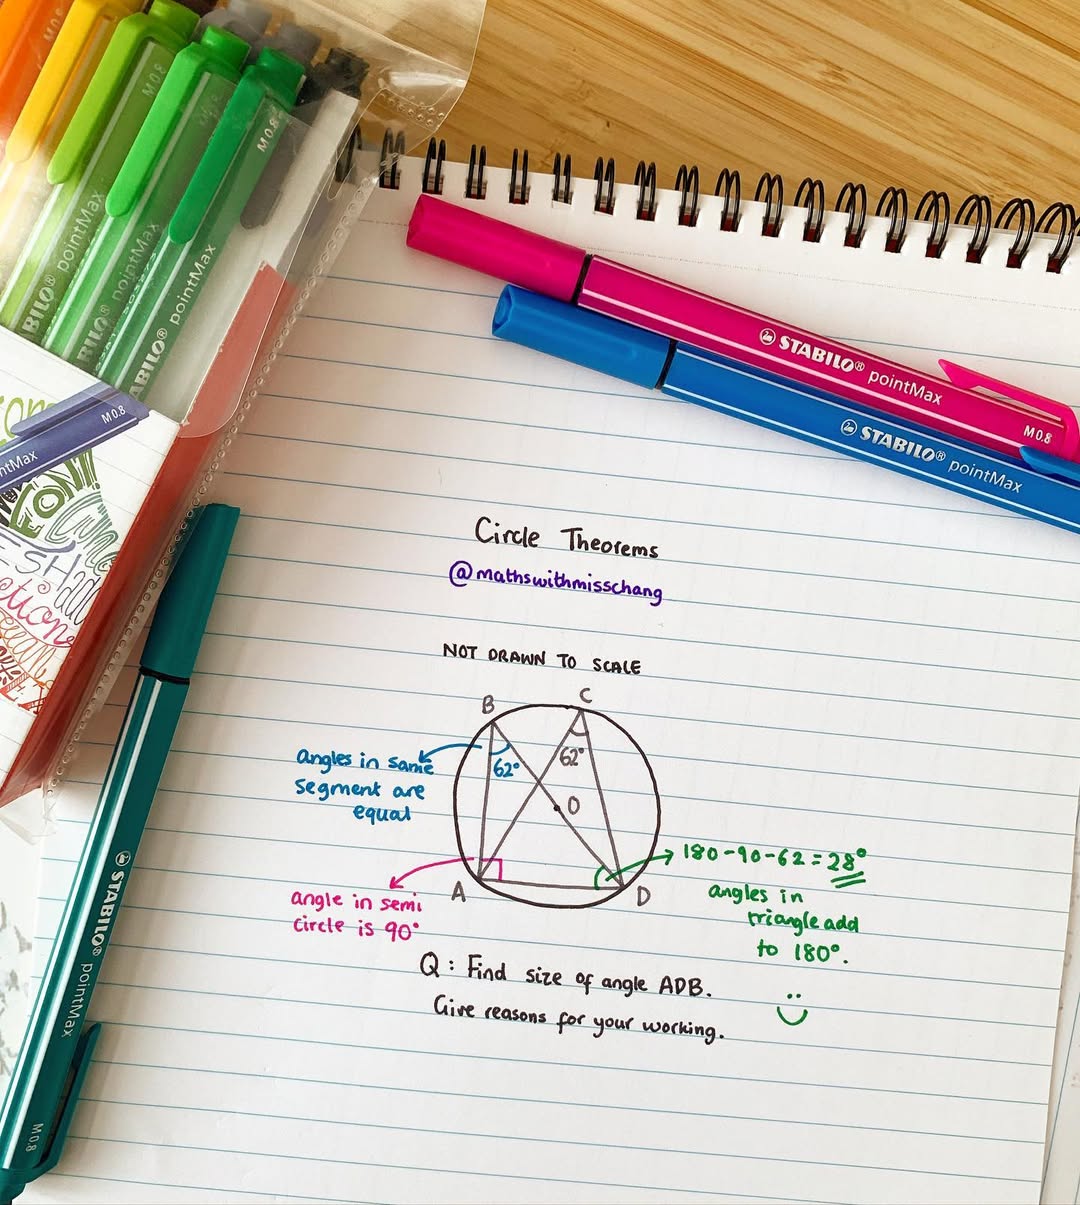 M0.8
M0.8
M0.8
STABILO® pointMax
STABILO® pointMax
STABILO® pointMax
M0.8
ntMax
FONT
STABILO® pointMax
M0.8
STABILO® pointMax
M0.8
STABILO® pointMax
Circle Theorems
@mathswithmisschang
NOT DRAWN TO SCALE
B
C
angles in same
segment are
equal
62°
62°
O
A
D
180-90-62=28°
angles in
triangle add
to 180°.
angle in semi
circle is 90°
Q: Find size of angle ADB.
Give reasons for your working.